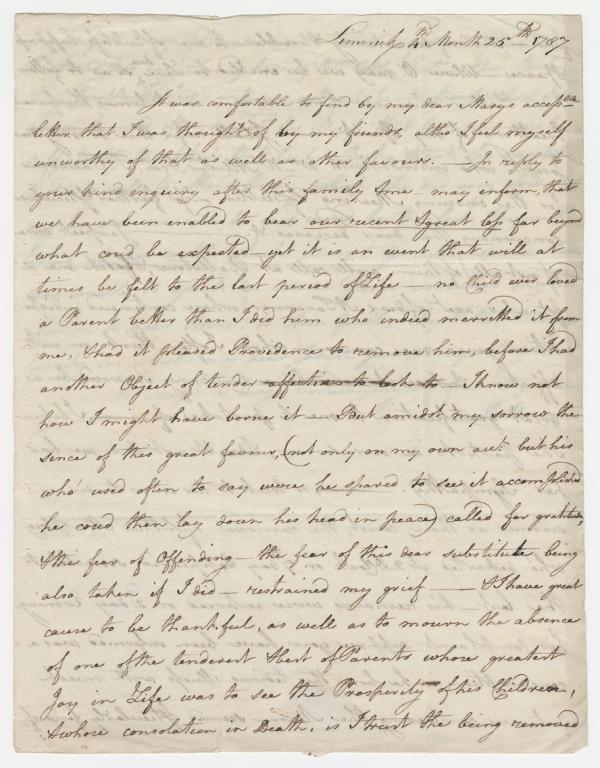 Limerick 4th Month 25th 1787
It was comfortable to find by my dear Marys acceptble
letter that I was thought of by my friends, altho I feel myself
unworthy of that as well as other favours. — In reply to
your kind enquiry after this family & me — may inform, that
we have been enabled to bear our recent & great loss far beyond
what coud be expected — yet it is an event that will at
times be felt to the last period of Life — no Child ever loved
a Parent better than I did him who' indeed merrited it from
me, & had it pleased Providence to remove him, before I had
another Object of tender affection to look to — I know not
how I might have borne it — But amidst my sorrow the
sence of this great favour, (not only on my own acct. but his
who' used often to say were he spared to see it accomplished
he coud then lay down his head in peace) called for gratitude,
& the fear of Offending — the fear of this dear substitute being
also taken if I did — restrained my grief — & I have great
cause to be thankful, as well as to mourn the absence
of one of the tenderest & best of Parents whose greatest
Joy in Life was to see the Prosperity of his Children,
& whose consolation in Death, is I trust the being removed